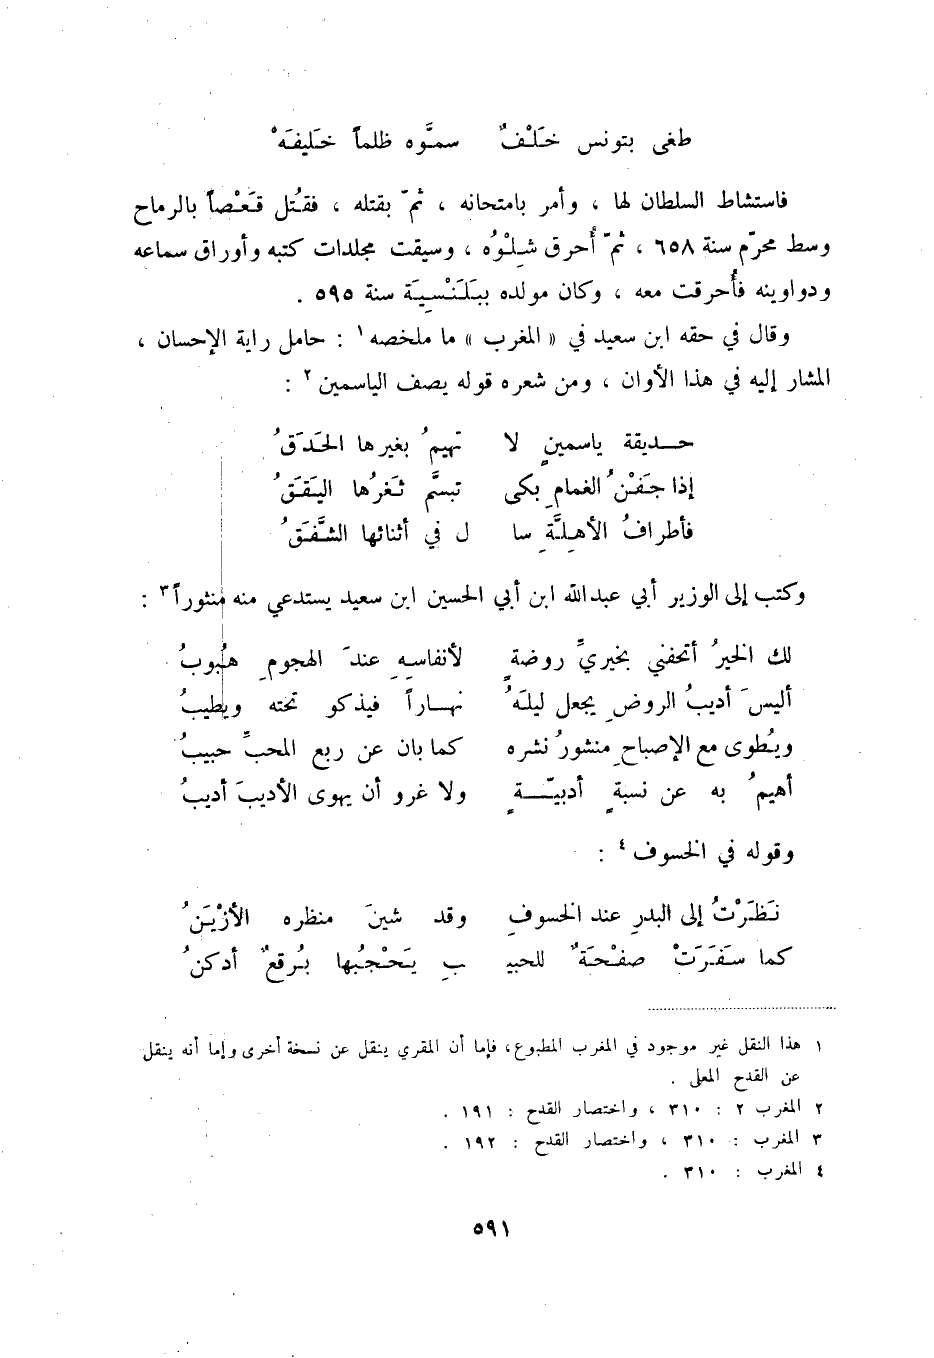 طغى بتونس خَلْفٌ سمَّوه ظلماً خَليفَهْ
فاستشاط السلطان لها ، وأمر بامتحانه ، ثمّ بقتله ، فقُتل قَعْصاً بالرماح
وسط محرّم سنة ٦٥٨ ، ثمّ أُحرق شِلْوُه ، وسيقت مجلدات كتبه وأوراق سماعه
ودواوينه فأُحرقت معه ، وكان مولده ببَلَنْسِيَة سنة ٥٩٥ .
وقال في حقه ابن سعيد في « المغرب » ما ملخصه ١ : حامل راية الإحسان ،
المشار إليه في هذا الأوان ، ومن شعره قوله يصف الياسمين ٢ :
حـديقة ياسمينٍ لا تهيمُ بغيرها الحَدَقُ
إذا جَفْنُ الغمامِ بكى تبسَّم ثَغرُها اليَقَقُ
فأطرافُ الأهِلَّةِ سا ل في أثنائها الشَّفَقُ
وكتب إلى الوزير أبي عبدالله ابن أبي الحسين ابن سعيد يستدعي منه منثوراً ٣ :
لك الخيرُ أتحفني بخيريِّ روضةٍ لأنفاسِهِ عندَ الهجومِ هُبوبُ
أليسَ أديبُ الروضِ يجعل ليلَهُ نهـاراً فيذكو تحته ويطيبُ
ويُطوى مع الإصباحِ منشورُ نشره كما بان عن ربع المحبِّ حبيبُ
أهيمُ به عن نسبةٍ أدبيّــةٍ ولا غرو أن يهوى الأديبَ أديبُ
وقوله في الخسوف ٤ :
نَظَرْتُ إلى البدرِ عند الخسوفِ وقد شينَ منظره الأزْيَنُ
كما سَفَرَتْ صفْحَةٌ للحبيـ ـبِ يَحْجُبُها بُرقعٌ أدكنُ
١ هذا النقل غير موجود في المغرب المطبوع، فإما أن المقري ينقل عن نسخة أخرى وإما أنه ينقل
عن القدح المعلى .
٢ المغرب ٢ : ٣١٠ ، واختصار القدح : ١٩١ .
٣ المغرب : ٣١٠ ، واختصار القدح : ١٩٢ .
٤ المغرب : ٣١٠ .
٥٩١